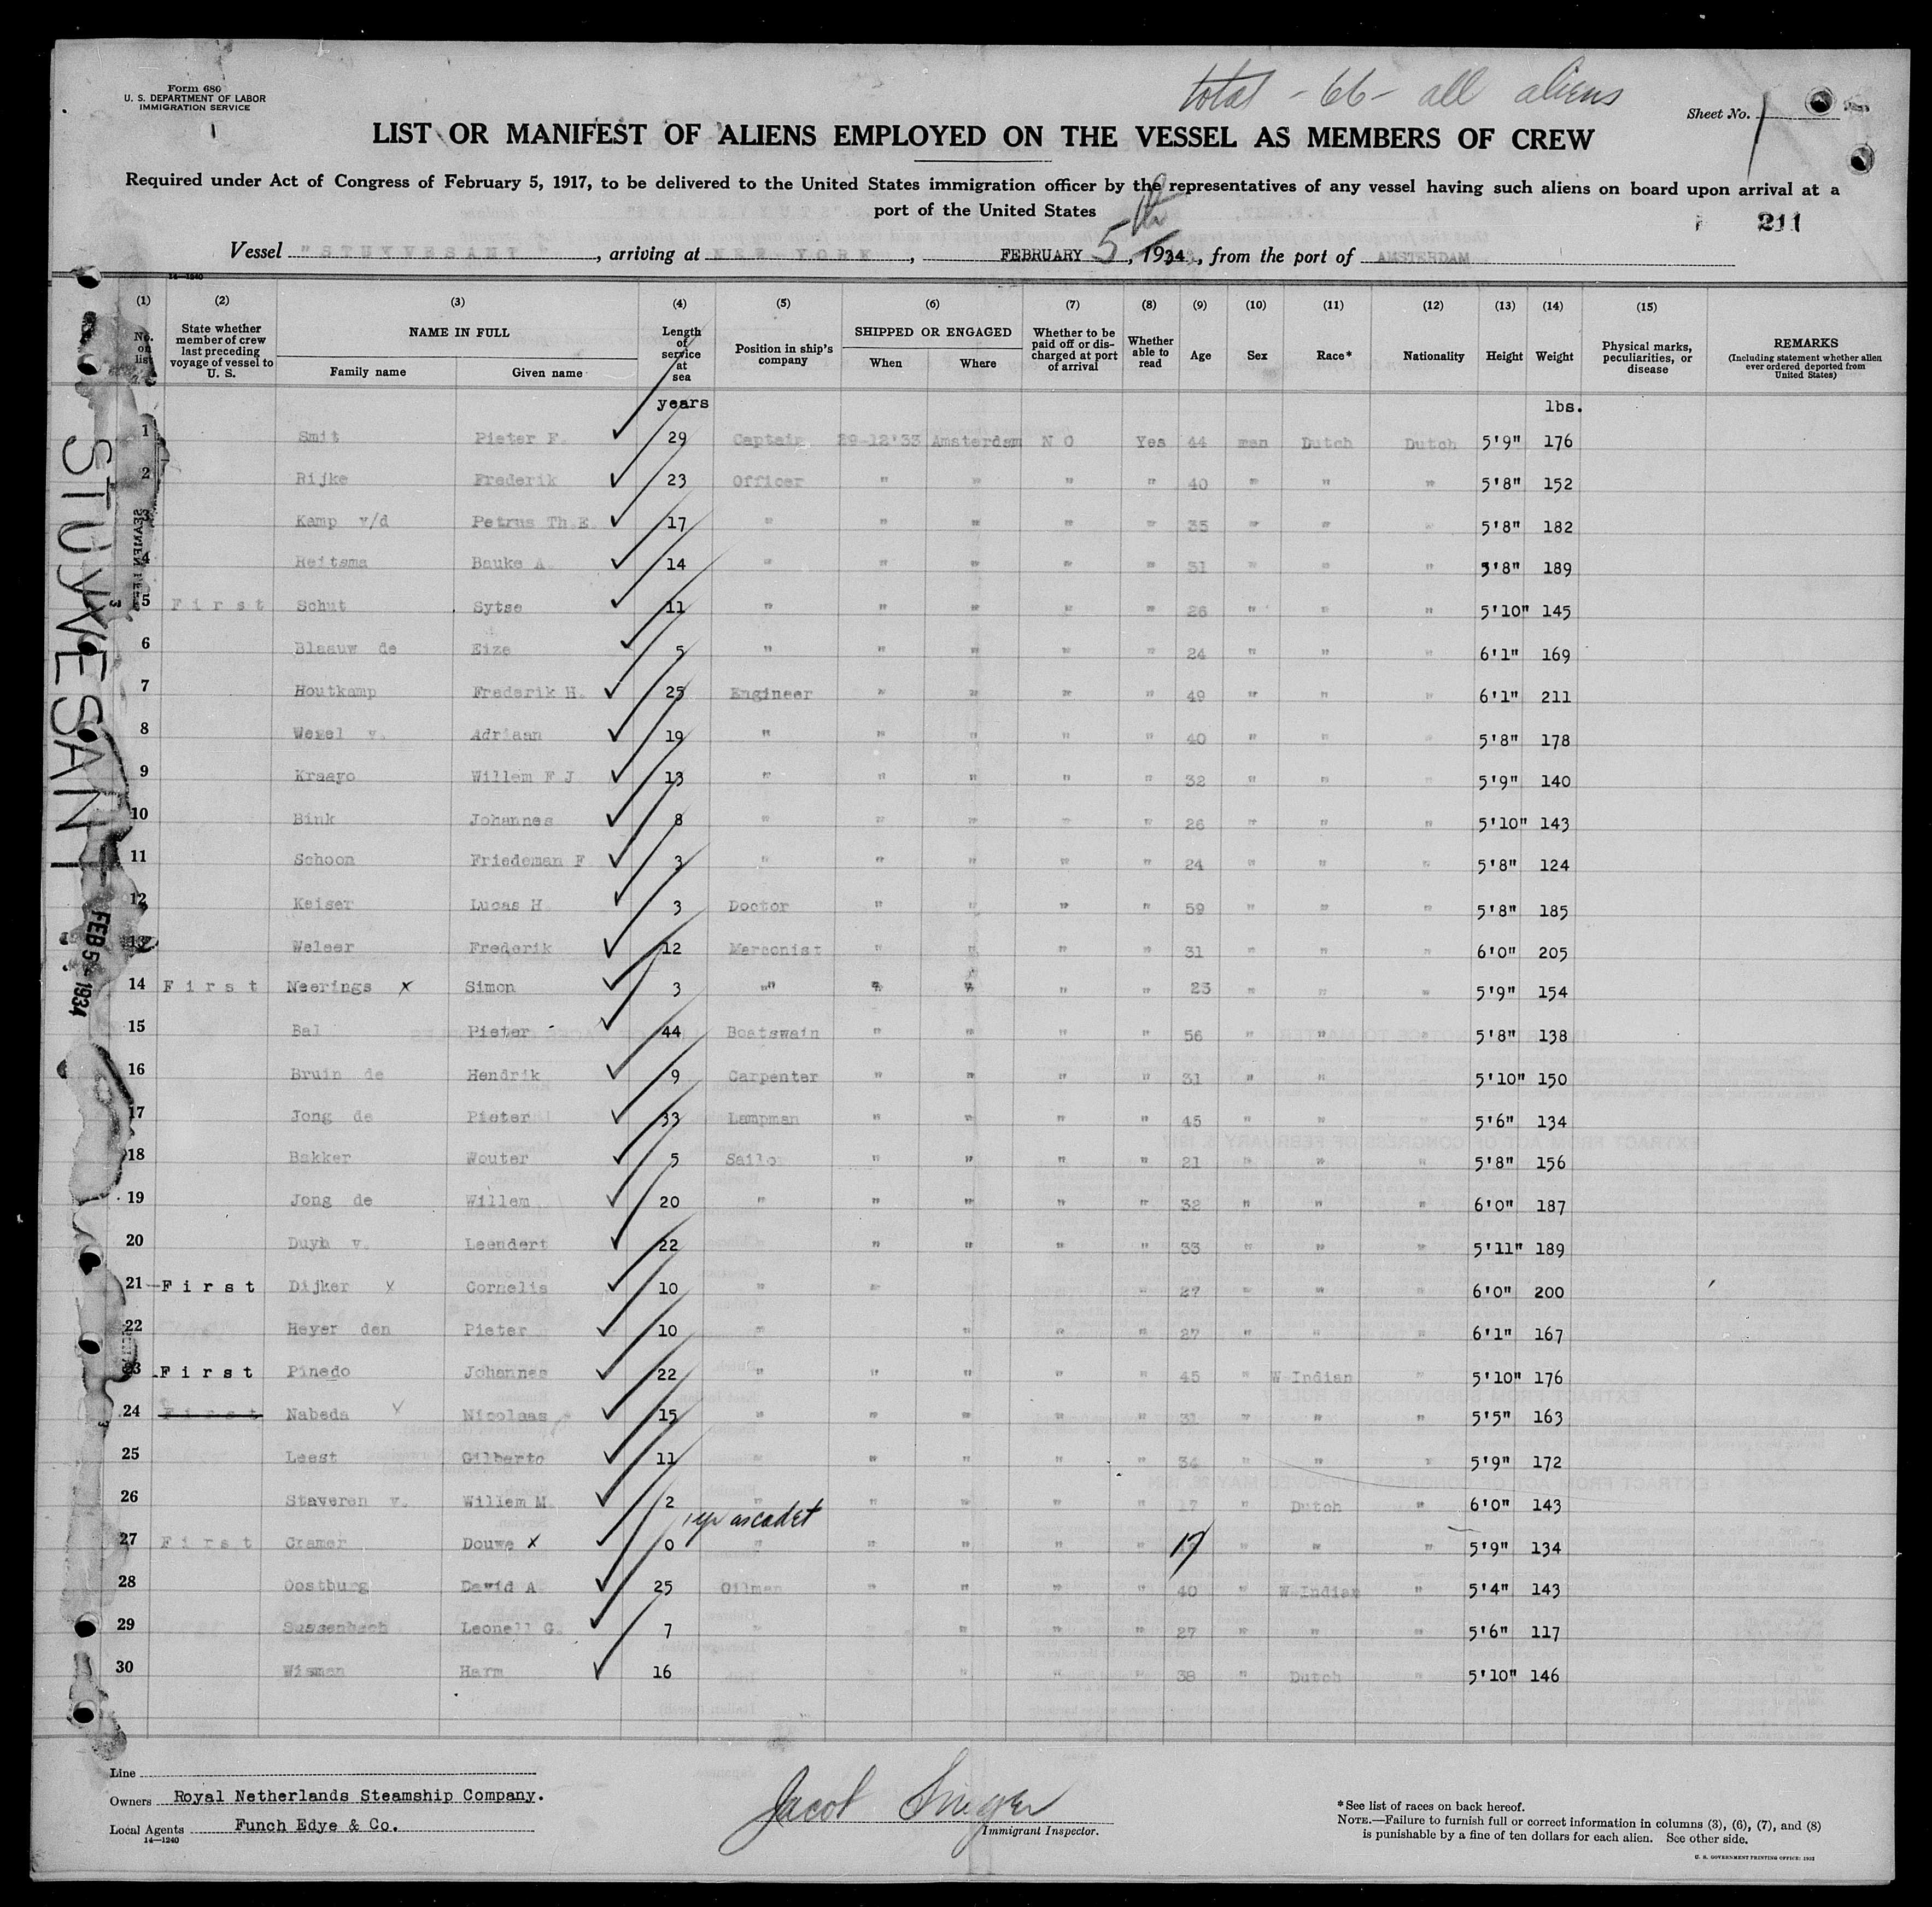 total - 66 - all aliens
Form 680
U. S. DEPARTMENT OF LABOR
IMMIGRATION SERVICE
Sheet No. 1
LIST OR MANIFEST OF ALIENS EMPLOYED ON THE VESSEL AS MEMBERS OF CREW
Required under Act of Congress of February 5, 1917, to be delivered to the United States immigration officer by the representatives of any vessel having such aliens on board upon arrival at a
port of the United States
211
Vessel "STUYVESANT", arriving at NEW YORK, FEBRUARY 5th, 1934, from the port of AMSTERDAM
14—1240
(1) (2) (3) (4) (5) (6) (7) (8) (9) (10) (11) (12) (13) (14) (15)
No. on list
State whether member of crew last preceding voyage of vessel to U. S.
NAME IN FULL
Family name
Given name
Length of service at sea
Position in ship's company
SHIPPED OR ENGAGED
When
Where
Whether to be paid off or discharged at port of arrival
Whether able to read
Age
Sex
Race*
Nationality
Height
Weight
Physical marks, peculiarities, or disease
REMARKS
(Including statement whether alien ever ordered deported from United States)
years lbs.
1 Smit Pieter F. 29 Captain 29-12'33 Amsterdam NO Yes 44 man Dutch Dutch 5'9" 176
2 Rijke Frederik 23 Officer " " " " 40 " " " 5'8" 152
3 Kamp v/d Petrus Th.E. 17 " " " " " 35 " " " 5'8" 182
4 Reitsma Bauke A. 14 " " " " " 31 " " " 5'8" 189
5 First Schut Sytse 11 " " " " " 26 " " " 5'10" 145
6 Blaauw de Eize 5 " " " " " 24 " " " 6'1" 169
7 Houtkamp Frederik H. 25 Engineer " " " " 49 " " " 6'1" 211
8 Wezel v. Adriaan 19 " " " " " 40 " " " 5'8" 178
9 Kraayo Willem F J 13 " " " " " 32 " " " 5'9" 140
10 Bink Johannes 8 " " " " " 26 " " " 5'10" 143
11 Schoon Friedeman F 3 " " " " " 24 " " " 5'8" 124
12 Keiser Lucas H. 3 Doctor " " " " 59 " " " 5'8" 185
13 Weleer Frederik 12 Marconist " " " " 31 " " " 6'0" 205
14 First Neerings x Simon 3 " " " " " 23 " " " 5'9" 154
15 Bal Pieter 44 Boatswain " " " " 56 " " " 5'8" 138
16 Bruin de Hendrik 9 Carpenter " " " " 31 " " " 5'10" 150
17 Jong de Pieter 33 Lampman " " " " 45 " " " 5'6" 134
18 Bakker Wouter 5 Sailo " " " " 21 " " " 5'8" 156
19 Jong de Willem 20 " " " " " 32 " " " 6'0" 187
20 Duyn v. Leendert 22 " " " " 33 " " " 5'11" 189
21 First Dijker x Cornelis 10 " " " 27 " " " 6'0" 200
22 Heyer den Pieter 10 " " " " 27 " " " 6'1" 167
23 First Pinedo Johannes 22 " " " " " 45 " W Indian " 5'10" 176
24 First Nabeda Nicolaas 15 " " " " " 31 " " " 5'5" 163
25 Leest Gilberto 11 " " " " " 34 " " " 5'9" 172
26 Staveren v. Willem M. 2 " " " " " 17 " Dutch " 6'0" 143
27 First Cramer Douwe x 0 " " " " " 17 " " " 5'9" 134
28 Oostburg David A 25 Oilman " " " " 40 " W Indian " 5'4" 143
29 Sussenbach Leonell G. 7 " " " " 27 " " " 5'6" 117
30 Wisman Harm 16 " " " " 38 " Dutch " 5'10" 146
STUYVESANT
FEB 5 - 1934
Line
Owners Royal Netherlands Steamship Company.
Local Agents Funch Edye & Co.
14—1240
Jacob
Immigrant Inspector.
*See list of races on back hereof.
NOTE.—Failure to furnish full or correct information in columns (3), (6), (7), and (8)
is punishable by a fine of ten dollars for each alien. See other side.
U. S. GOVERNMENT PRINTING OFFICE: 1932